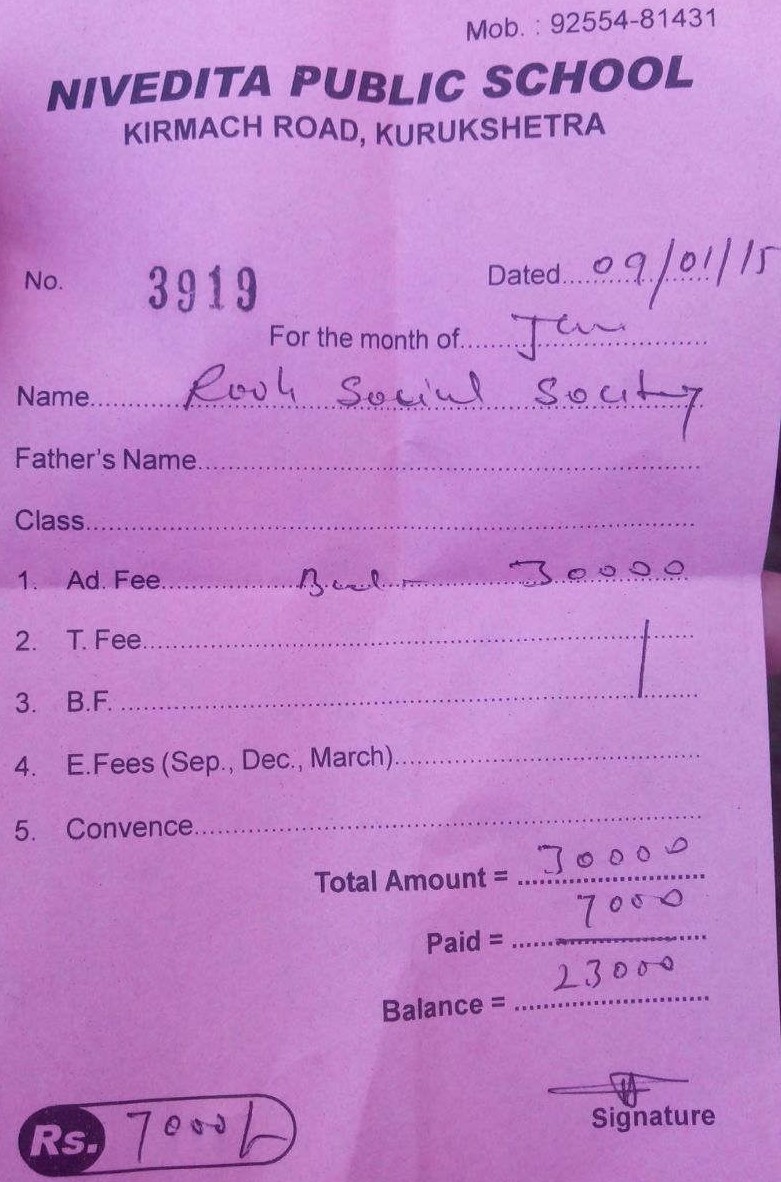 Mob. : 92554-81431
NIVEDITA PUBLIC SCHOOL
KIRMACH ROAD, KURUKSHETRA
No. 3919 Dated....09/01/15
For the month of.....Jan
Name......Rooh Social Socity
Father's Name
Class
1. Ad. Fee 30000
2. T. Fee
3. B.F.
4. E.Fees (Sep., Dec., March)
5. Convence
Total Amount = 30000
Paid = 7000
Balance = 23000
Signature
Rs. 7000/-